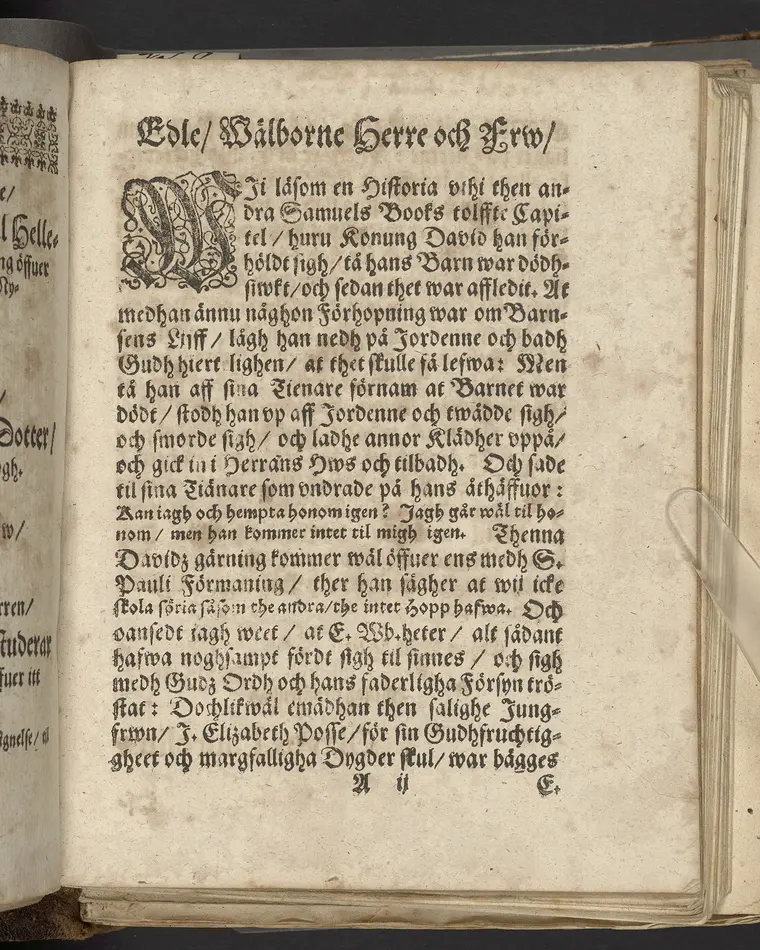 e/
l Helle⸗
ng öffuer
Ny⸗
/
Dotter/
gh.
w/
rren/
studerar
fuer itt
ignelse/ al
Edle/ Wälborne Herre och Frw/
WIi läsom en Historia vthi then an⸗
dra Samuels Books tolffte Capi⸗
tel/ huru Konung David han för⸗
höldt sigh/ tå hans Barn war dödh⸗
siwkt/ och sedan thet war affledit. At
medhan ännu någhon Förhopning war om Barn⸗
sens Lijff/ lågh han nedh på Jordenne och badh
Gudh hiert lighen/ at thet skulle få lefwa: Men
tå han aff sina Tienare förnam at Barnet war
dödt/ stodh han vp aff Jordenne och twådde sigh/
och smorde sigh/ och ladhe annor Klädher vppå/
och gick in i Herrans Hws och tilbadh. Och sade
til sina Tiänare som vndrade på hans åthäffuor:
Kan iagh och hempta honom igen? Jagh går wäl til ho⸗
nom/ men han kommer intet til migh igen. Thenna
Davidz gärning kommer wäl öffuer ens medh S.
Pauli Förmaning/ ther han sägher at wij icke
skola söria såsom the andra/ the intet Hopp hafwa. Och
oansedt iagh weet/ at E. Wb.heter/ alt sådant
hafwa noghsampt fördt sigh til sinnes/ och sigh
medh Gudz Ordh och hans faderligha Försyn trö⸗
stat: Dochlikwäl emädhan then salighe Jung⸗
frwn/ J. Elizabeth Posse/ för sin Gudhfruchtig⸗
gheet och margfalligha Dygder skul/ war bägges
A ij E.